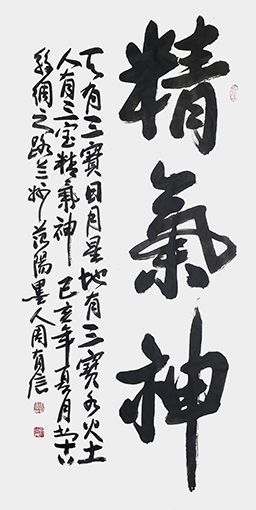 精氣神
天有三寶日月星地有三寶水火土
人有三宝精氣神 己亥年夏月廿六
絲綢之路兰州范陽墨人周有信